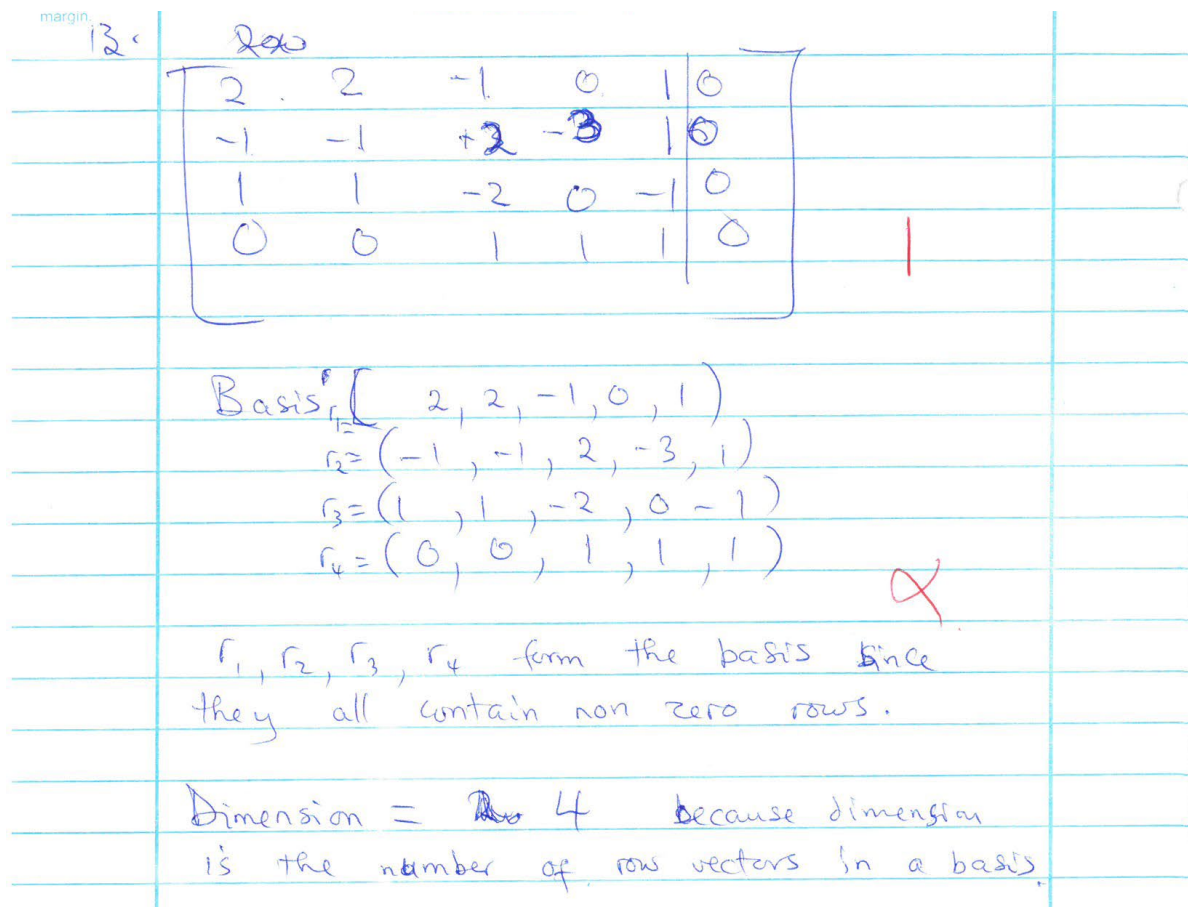 margin.
12.
2 2 -1 0 1 0
-1 -1 +2 -3 1 0
1 1 -2 0 -1 0
0 0 1 1 1 0
1
Basis: r1= [ 2, 2, -1, 0, 1)
r2= (-1, -1, 2, -3, 1)
r3= (1, 1, -2, 0 -1)
r4= (0, 0, 1, 1, 1)
r1, r2, r3, r4 form the basis since
they all contain non zero rows.
Dimension = 4 because dimension
is the number of row vectors in a basis.